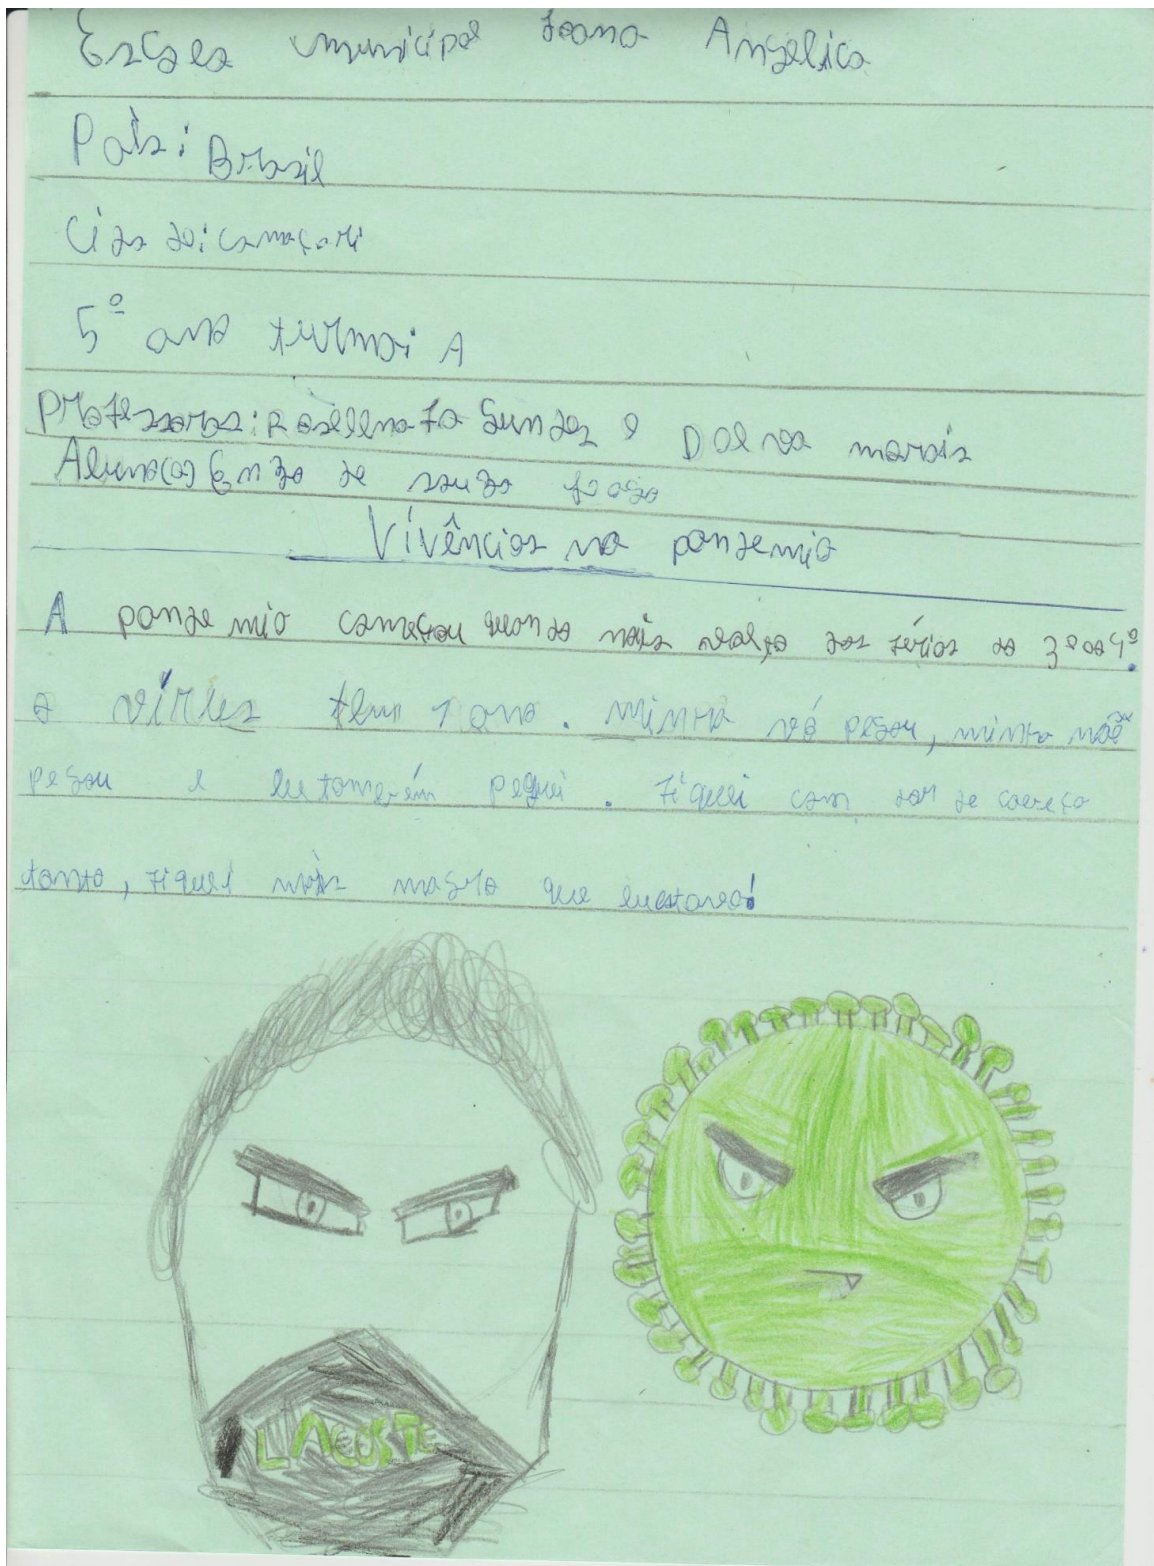 Escola municipal Joana Angélica
País: Brasil
Cidade: Camaçari
5º ano turma: A
Professoras: Roselena Fagundes e Dalva morais
Aluno(a) Enzo de souza
Vivências na pandemia
A pandemia começou quando nóis voltço das férias do 3º ao 4º.
o vírus tem 1 ano. Minha vó pegou, minha mãe
pegou e eu tamém peguei. Fiquei com dor de cabeça
tonto, fiquei mais magro que eu estava!
LACOSTE